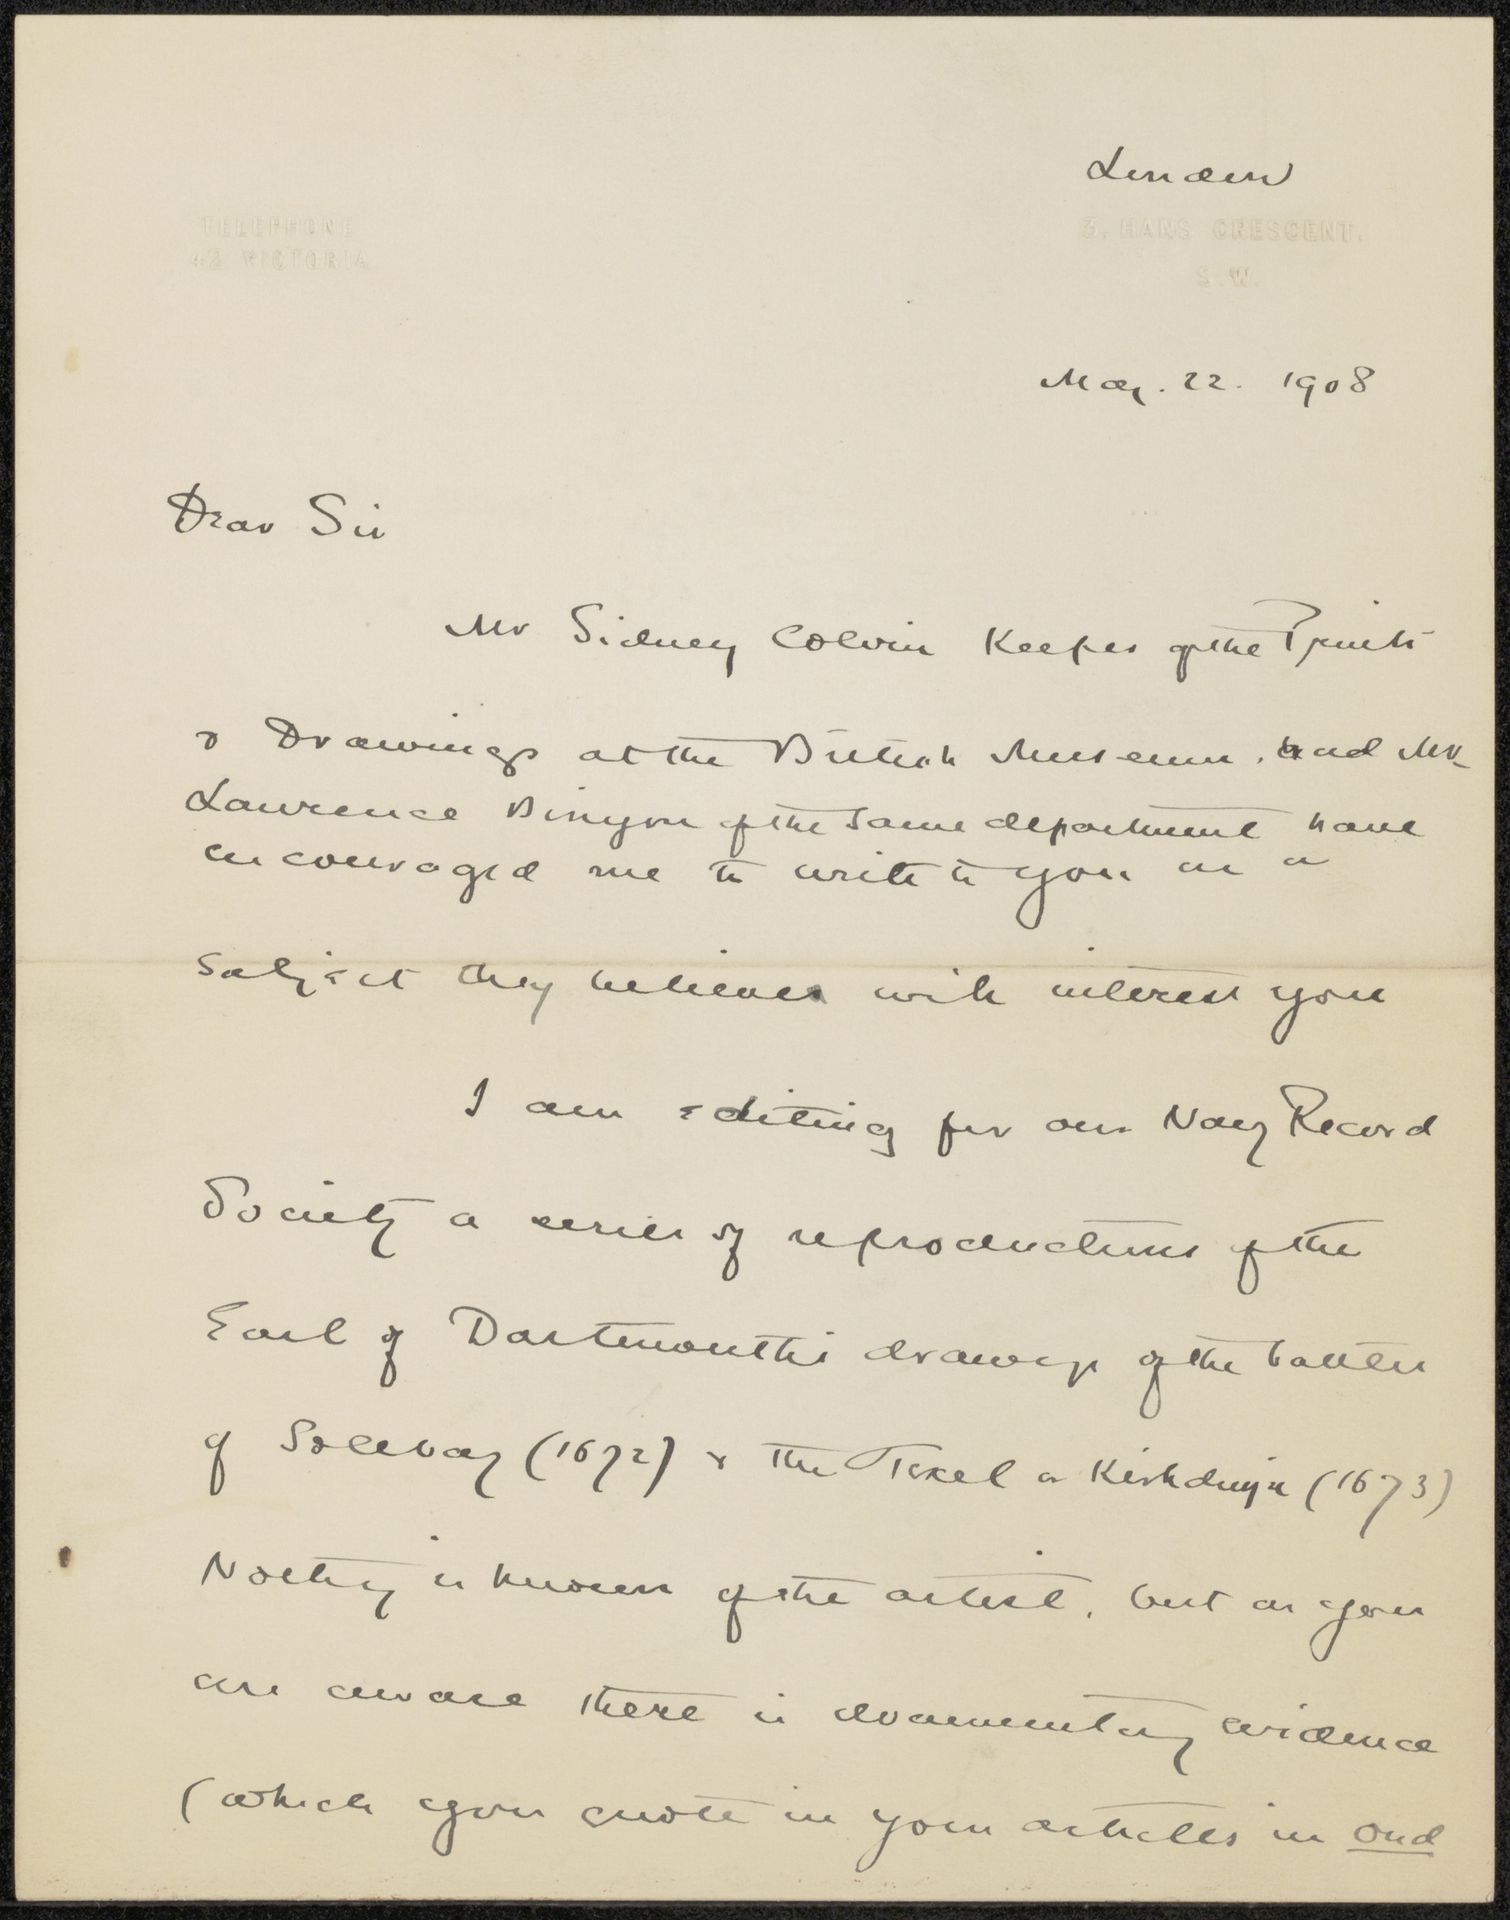 London
TELEPHONE
42 VICTORIA
3, HANS CRESCENT,
S.W.
May. 22. 1908
Dear Sir
Mr Sidney Colvin Keeper of the Prints
& Drawings at the British Museum, and Mr
Lawrence Binyon of the same department have
encouraged me to write to you on a
subject they believe will interest you
I am editing for our Navy Record
Society a series of reproductions of the
Earl of Dartmouth's drawgs of the battles
of Solebay (1672) & the Texel or Kirkduijn (1673)
Nothing is known of the artist, but as you
are aware there is documentary evidence
(which you quote in your articles in Oud